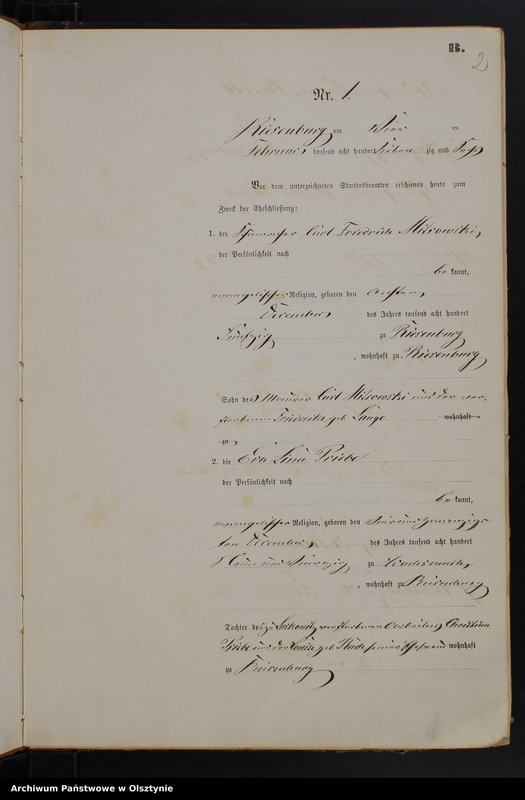 B.
2
Nr. 1.
Riesenburg am vier ten
Februar tausend acht hundert sieben zig und sechs
Vor dem unterzeichneten Standesbeamten erschienen heute zum
Zweck der Eheschließung:
1. der Carl Friedrich Misrowski,
der Persönlichkeit nach
be kannt,
evangelischer Religion, geboren den achten
December des Jahres tausend acht hundert
Fünfzig zu Riesenburg
, wohnhaft zu Riesenburg
Sohn des Maurer Carl Misrowski und der ver-
storbenen Friederike geb. Lange wohnhaft
zu
2. die Eva Lina Priebe
der Persönlichkeit nach
be kannt,
evangelischer Religion, geboren den vierundzwanzigs
ten December des Jahres tausend acht hundert
Neun und vierzig zu
, wohnhaft zu Riesenburg
Tochter des zu verstorbenen Christian
Priebe und der Louise geb. wohnhaft
zu Riesenburg
Archiwum Państwowe w Olsztynie